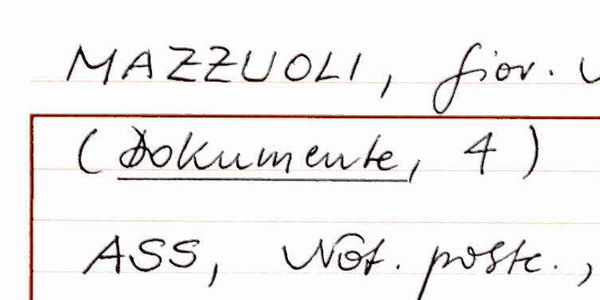 MAZZUOLI, Giov.
(Dokumente, 4)
ASS, Not. postc.,